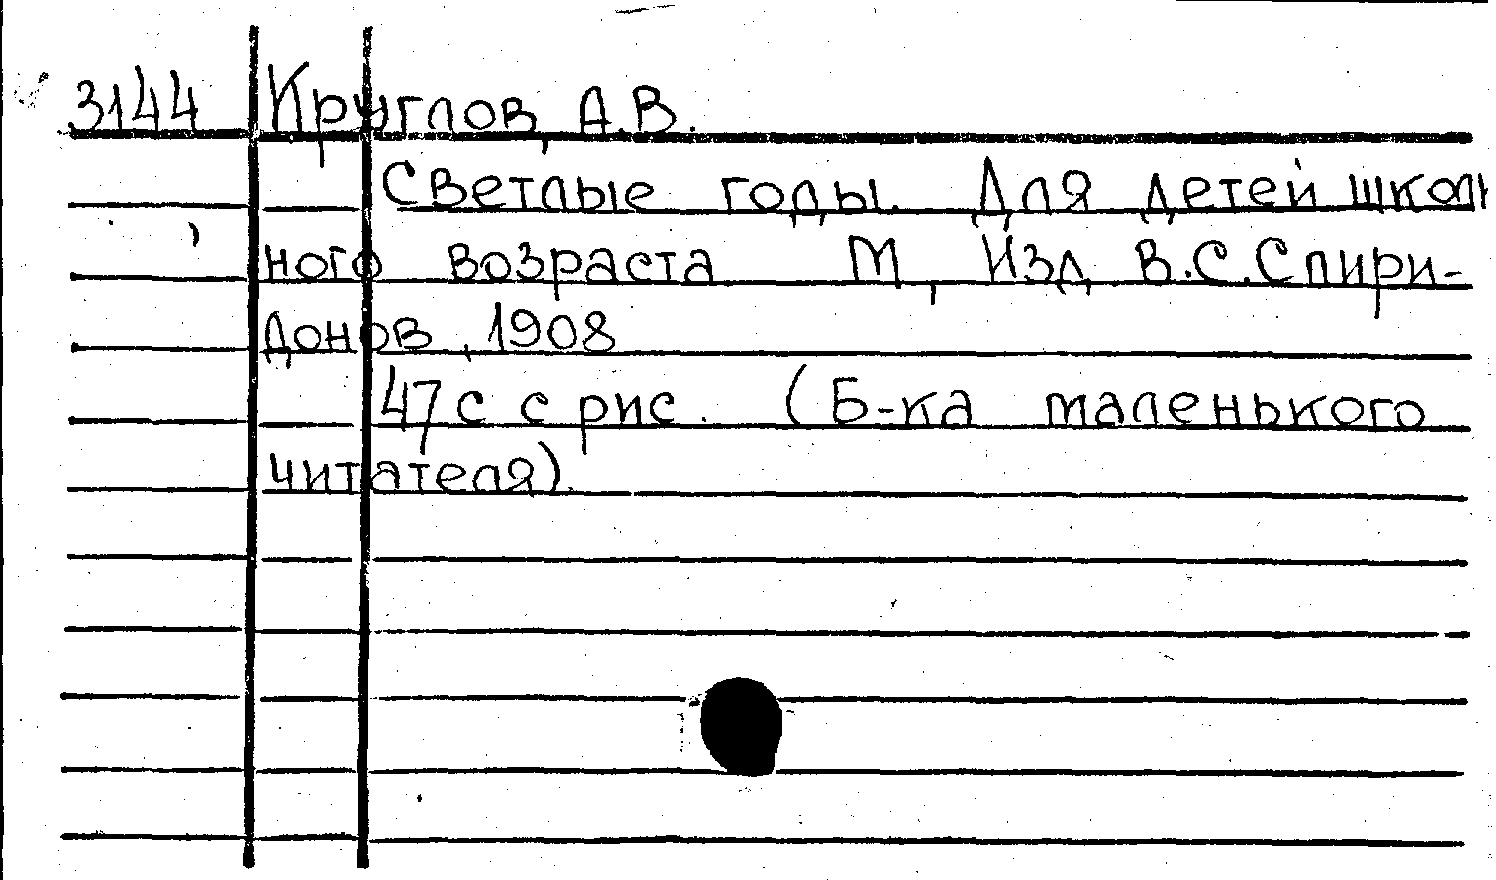 3144 Круглов, А.В.
Светлые годы. Для детей школь
ного возраста М, Изд, В.С.Спири-
донов, 1908
47 с с рис. (Б-ка маленького
читателя).